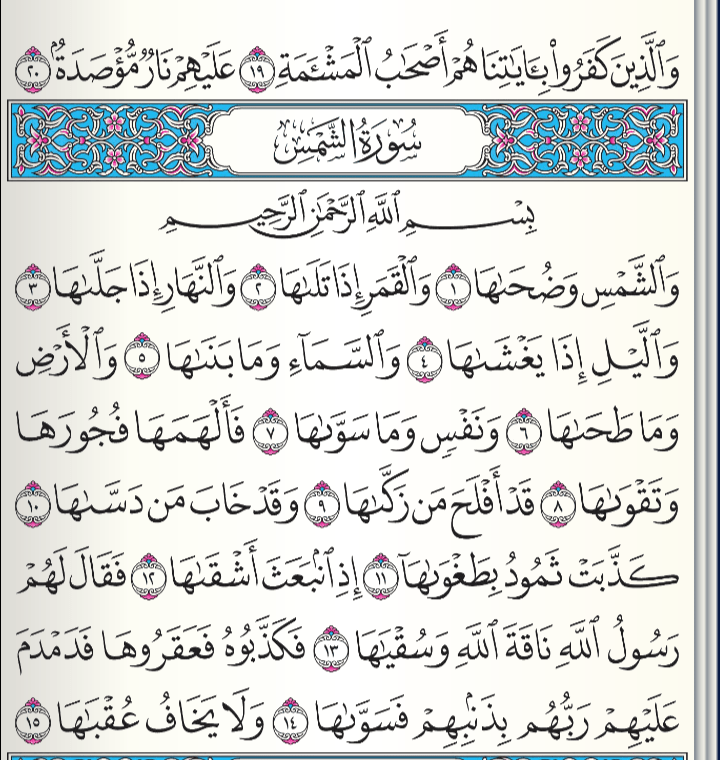 وَٱلَّذِينَ كَفَرُوا۟ بِـَٔايَـٰتِنَا هُمْ أَصْحَـٰبُ ٱلْمَشْـَٔمَةِ ١٩ عَلَيْهِمْ نَارٌ مُّؤْصَدَةٌۢ ٢٠
سُورَةُ الشَّمْسِ
بِسْمِ ٱللَّهِ ٱلرَّحْمَـٰنِ ٱلرَّحِيمِ
وَٱلشَّمْسِ وَضُحَىٰهَا ١ وَٱلْقَمَرِ إِذَا تَلَىٰهَا ٢ وَٱلنَّهَارِ إِذَا جَلَّىٰهَا ٣
وَٱلَّيْلِ إِذَا يَغْشَىٰهَا ٤ وَٱلسَّمَآءِ وَمَا بَنَىٰهَا ٥ وَٱلْأَرْضِ
وَمَا طَحَىٰهَا ٦ وَنَفْسٍ وَمَا سَوَّىٰهَا ٧ فَأَلْهَمَهَا فُجُورَهَا
وَتَقْوَىٰهَا ٨ قَدْ أَفْلَحَ مَن زَكَّىٰهَا ٩ وَقَدْ خَابَ مَن دَسَّىٰهَا ١٠
كَذَّبَتْ ثَمُودُ بِطَغْوَىٰهَآ ١١ إِذِ ٱنۢبَعَثَ أَشْقَىٰهَا ١٢ فَقَالَ لَهُمْ
رَسُولُ ٱللَّهِ نَاقَةَ ٱللَّهِ وَسُقْيَـٰهَا ١٣ فَكَذَّبُوهُ فَعَقَرُوهَا فَدَمْدَمَ
عَلَيْهِمْ رَبُّهُم بِذَنۢبِهِمْ فَسَوَّىٰهَا ١٤ وَلَا يَخَافُ عُقْبَـٰهَا ١٥